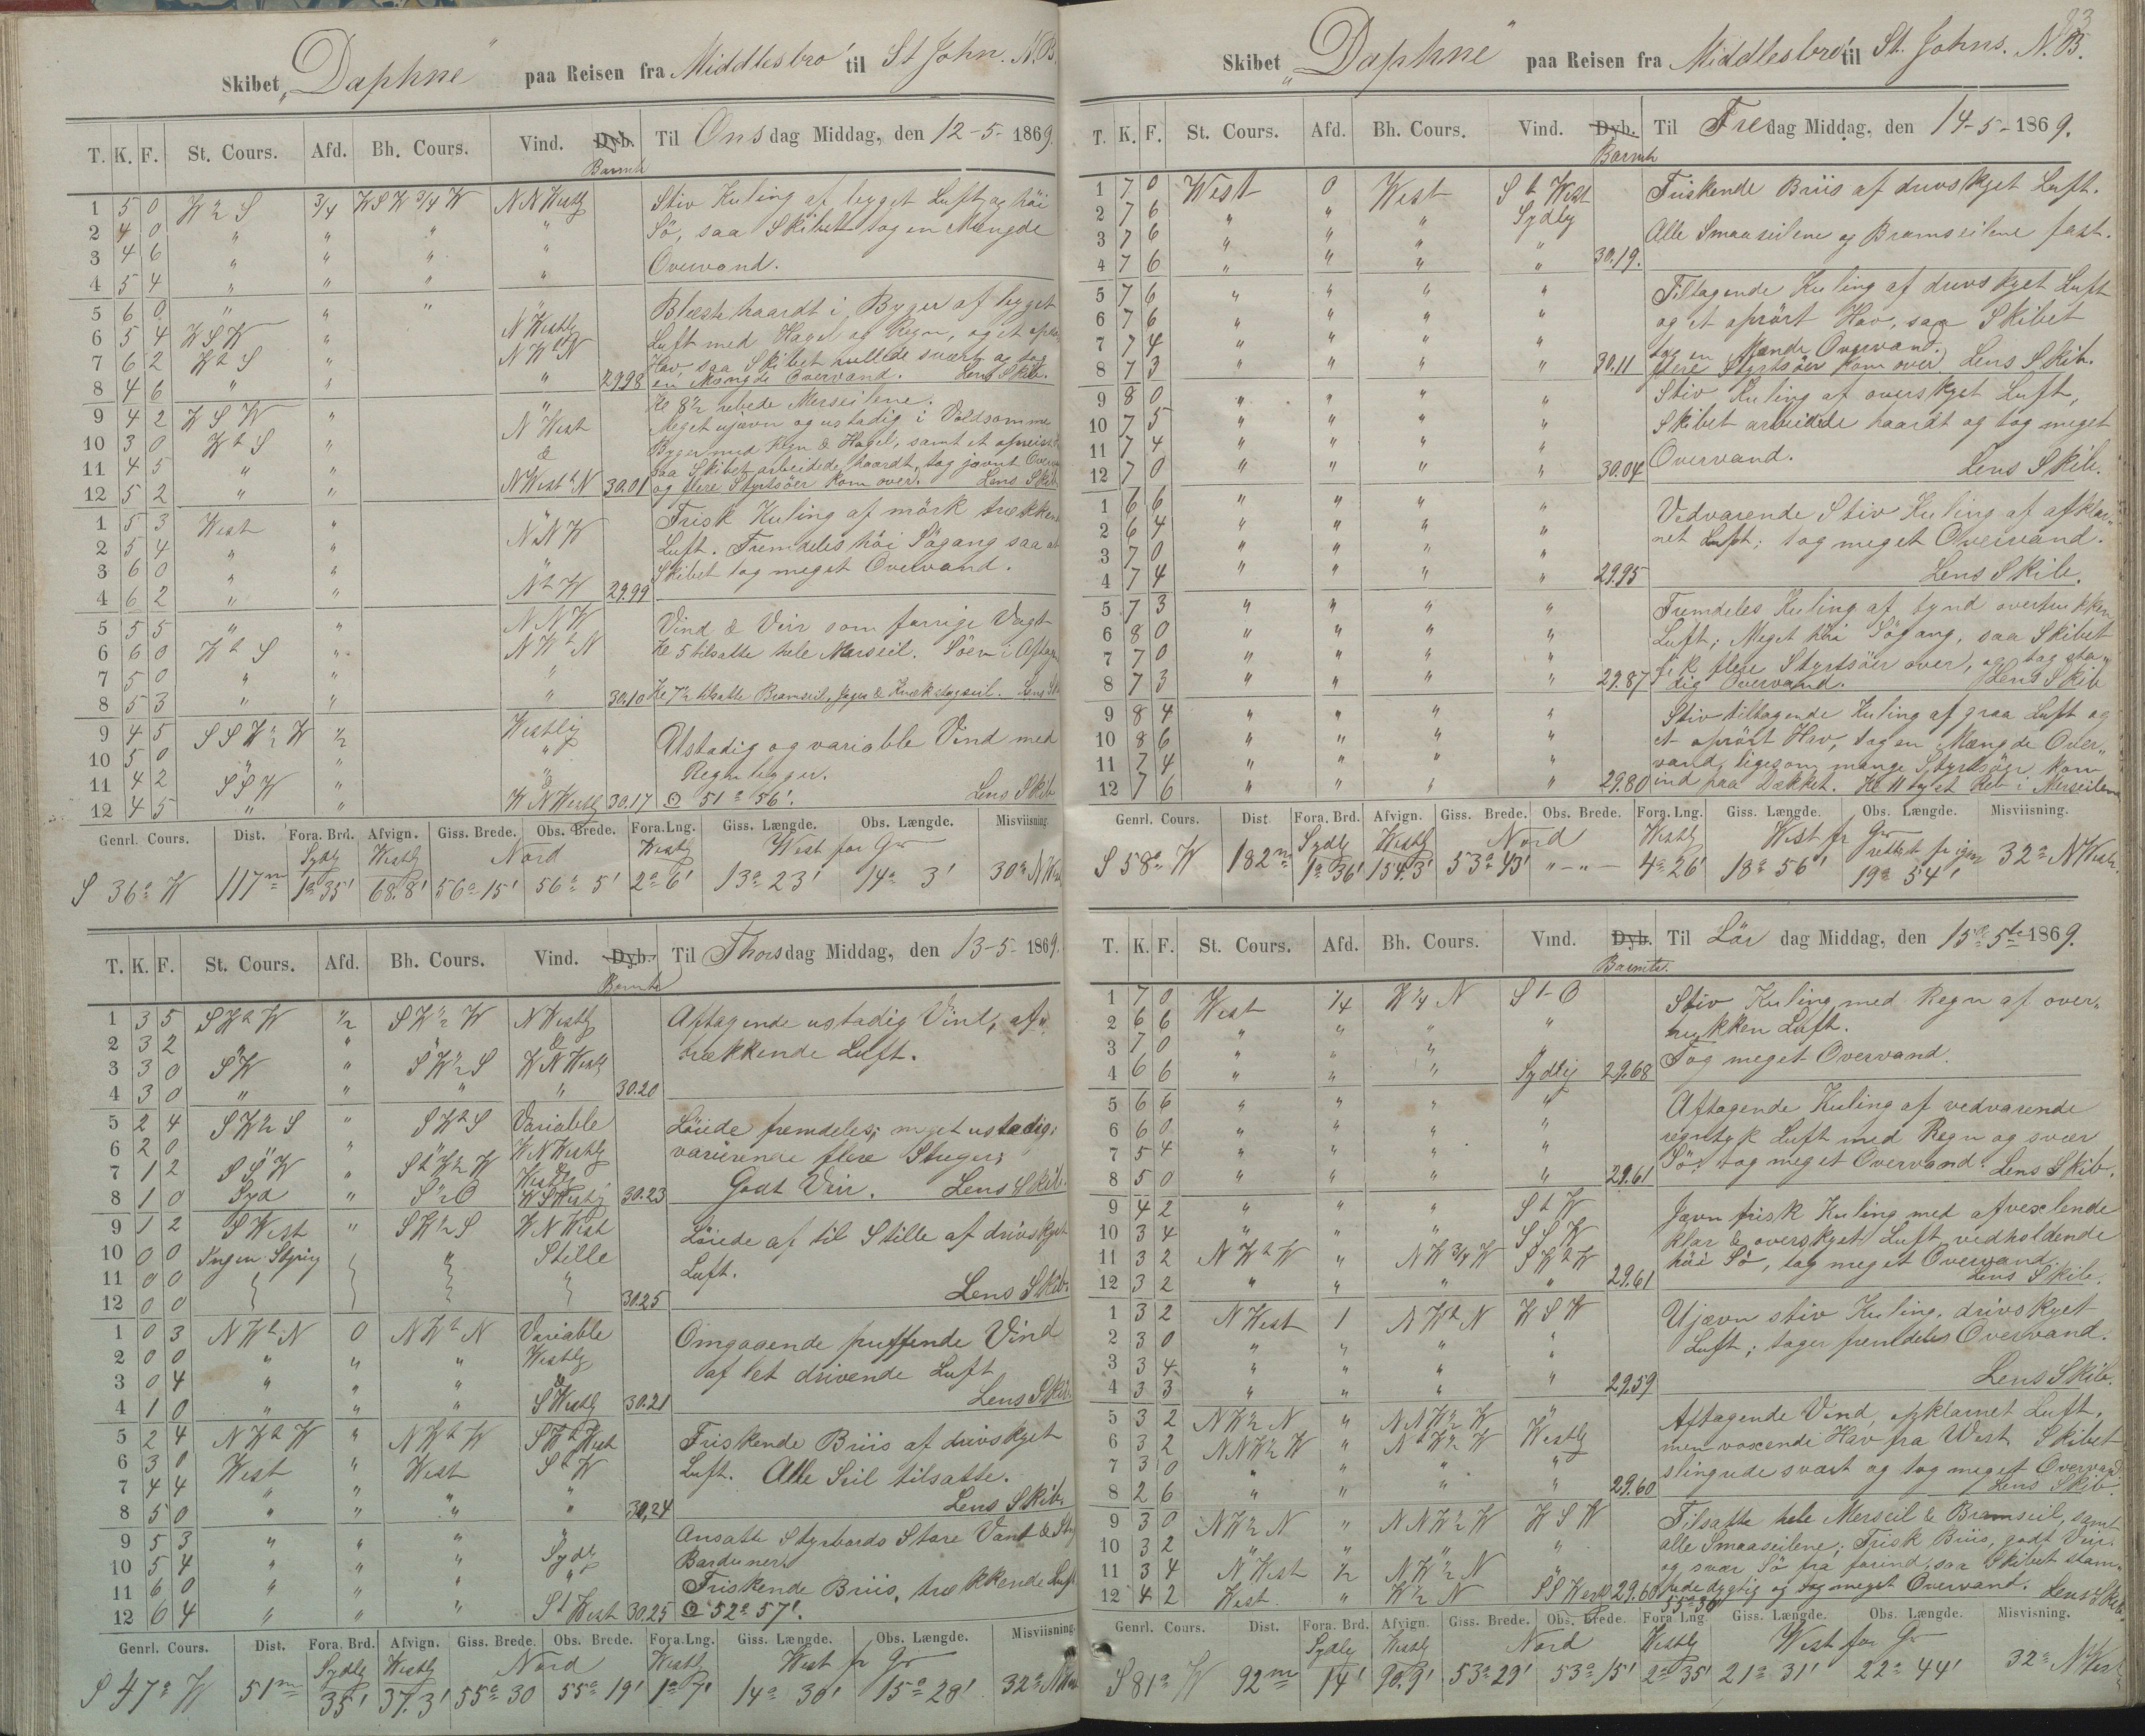 Skibet „Daphne" paa Reisen fra Middlesbro' til St John. N.B.
T. K. F. St. Cours. Afd. Bh. Cours. Vind. Dyb. Til Onsdag Middag, den 12-5-1869.
Barmtr
1 5 0 ¾ WSW ¾ W NNWestlg Stiv Kuling af bygget Luft og höi
2 4 0 " " " " Sö, saa Skibet tog en Mængde
3 4 6 " " " " Overvand.
4 5 4 " " "
5 6 0 " " " " Blæste haardt i Byger af bygget
6 5 4 WSW " NWestlg Luft med Hagel og Regn, og et
7 6 2 " Hav, saa Skibet rullede svært og tog
8 4 6 " " " 29.98 en Mængde Overvand. Lens Skib.
Kl 8½ rebede Merseilene.
9 4 2 WSW " " Meget ujævn og ustadig i Voldsomme
10 3 0 " N West Byger med Regn & Hagel, samt et
11 4 5 " " & saa Skibet arbeidede haardt, tog jævnt
12 5 2 " " 30.01 og flere Styrtsöer kom over. Lens Skib
1 5 3 West " " Frisk Kuling af mörk
2 5 4 " " NNW Luft. Fremdeles höi Sögang saa at
3 6 0 " " " Skibet tog meget Overvand.
4 6 2 " " 29.99
5 5 5 " " NNW Vind & Veir som forrige Vagt
6 6 0 " Kl 5 tilsatte hele Merseil. Söen i
7 5 0 " " "
8 5 3 " " " 30.10 Kl 7½ tilsatte Bramseil, Jager &
9 4 5 ½ Westlig Ustadig og variable Vind med
10 5 0 " " " Regnbyger.
11 4 2 SSW " &
12 4 5 " " WNWestlg 30.17 ⊙ 51° 56'. Lens Skib
Genrl. Cours. Dist. Fora. Brd. Afvign. Giss. Brede. Obs. Brede. Fora. Lng. Giss. Længde. Obs. Længde. Misviisning.
Sydlg Westlg Nord Westlg West for Gr
S 36° W 117m 1° 35' 68.8' 56° 15' 56° 5' 2° 6' 13° 23' 14° 3' 30°
T. K. F. St. Cours. Afd. Bh. Cours. Vind. Dyb. Til Thorsdag Middag, den 13-5-1869.
Barmtr
1 3 5 ½ N Westlg Aftagende ustadig Vind, af
2 3 2 " " " & trækkende Luft.
3 3 0 SW " WNWestlg
4 3 0 " " " " 30.20
5 2 4 " Variable Löiede fremdeles; meget ustadig;
6 2 0 " " " WNWestlg varierende flere Streger;
7 1 2 " Westlg Godt Veir. Lens Skib.
8 1 0 Syd " WSWestlg 30.23
9 1 2 S West " W N West Löiede af til Stille af drivskyet
10 0 0 Ingen Styring " Stille Luft.
11 0 0 " Lens Skib.
12 0 0 30.25
1 0 3 0 Variable Omgaaende puffende Vind
2 0 0 " " " Westlg af let drivende Luft
3 0 4 " " " &
4 1 0 " " " S Westlg 30.21 Lens Skib
5 2 4 " Friskende Briis af drivskyet
6 3 0 West " West Luft. Alle Seil tilsatte.
7 4 4 " " " "
8 5 0 " " " " 30.24 Lens Skib.
9 5 3 " " " " Ansatte Styrbords Store Vant &
10 5 4 " " " Sydl Barduner.
11 6 0 " " " " Friskende Briis, trækkende Luft
12 6 4 " " " 30.25 ⊙ 52° 57'.
Genrl. Cours. Dist. Fora. Brd. Afvign. Giss. Brede. Obs. Brede. Fora. Lng. Giss. Længde. Obs. Længde. Misviisning.
Sydlg Westlg Nord Westl West fr Gr
S 47° W 51m 35' 37.3' 55° 30 55° 19' 1° 7' 14° 30' 15° 28' 32°
83
Skibet „Daphne" paa Reisen fra Middlesbro' til St. Johns. N.B.
T. K. F. St. Cours. Afd. Bh. Cours. Vind. Dyb. Til Fredag Middag, den 14-5-1869.
Barmtr
1 7 0 West 0 West Friskende Briis af drivskyet Luft.
2 7 6 " " " Sydlg
3 7 6 " " " " Alle Smaaseilene og Bramseilene fast.
4 7 6 " " " " 30.19.
5 7 6 " " " " Tiltagende Kuling af drivskyet Luft
6 7 6 " " " " og et oprört Hav, saa Skibet
7 7 4 " " " " tog en Mænde Overvand.
8 7 3 " " " " 30.11 flere Styrtsöer kom over Lens Skib.
9 8 0 " " " " Stiv Kuling af overskyet Luft,
10 7 5 " " " " Skibet arbeidede haardt og tog meget
11 7 4 " " " " Overvand.
12 7 0 " " " " 30.04 Lens Skib.
1 6 6 " " " " Vedvarende Stiv Kuling af afklar„
2 6 4 " " " " net Luft; tog meget Overvand.
3 7 0 " " " "
4 7 4 " " " " 29.95 Lens Skib.
5 7 3 " " " " Fremdeles Kuling af tynd overtrukken
6 8 0 " " " " Luft; Meget höi Sögang, saa Skibet
7 7 0 " " " " fik flere Styrtsöer over, og tog sta„
8 7 3 " " " " 29.87 dig Overvand. Lens Skib
9 8 4 " " " " Stiv tiltagende Kuling af graa Luft og
10 8 6 " " " " et oprört Hav, tog en Mængde Over„
11 7 4 " " " " vand, ligesom mange Styrtsöer kom
12 7 6 " " " " 29.80 ind paa Dækket. Kl 11 Reb i Merseilene
Genrl. Cours. Dist Fora. Brd. Afvign. Giss. Brede. Obs. Brede. Fora. Lng. Giss. Længde. Obs. Længde. Misviisning.
Sydlg Westlg Nord Westlg West fr Gr
S 58° W 182m 1° 36' 154.3' 53° 43' „—„— 4° 26' 18° 56' 19° 54' 32° N West.
T. K. F. St. Cours. Afd. Bh. Cours. Vind. Dyb. Til Lördag Middag, den 15de 5te 1869.
Barmtr.
1 7 0 West ¼ W¼ N Stiv Kuling med Regn af over„
2 6 6 " " " " trukken Luft.
3 7 0 " " " " Tog meget Overvand.
4 6 6 " " " Sydlig 29.68
5 6 6 " " " " Aftagende Kuling af vedvarende
6 6 0 " " " " regntyk Luft med Regn og svær
7 5 4 " " " " Sö; tog meget Overvand. Lens Skib.
8 5 0 " " " " 29.61
9 4 2 " " " Jævn frisk Kuling med afvexlende
10 3 4 " " " S S W klar & overskyet Luft, vedholdende
11 3 2 " höi Sö, tog meget Overvand.
12 3 2 " " " " 29.61 Lens Skib.
1 3 2 N West 1 W S W Ujævn stiv Kuling, drivskyet
2 3 0 " " " " Luft; tager fremdeles Overvand.
3 3 4 " " "
4 3 3 " " " " 29.59 Lens Skib.
5 3 2 " " Aftagende Vind, opklarnet Luft,
6 3 2 " Westlg men voxende Hav fra West Skibet
7 3 0 " " " " slingrede svært og tog meget Overvand.
8 2 6 " " " " 29.60 Lens Skib.
9 3 0 " W S W Tilsatte hele Merseil & Bramseil, samt
10 3 2 " " " " alle Smaaseilene; Frisk Briis, godt Veir,
11 3 4 N West ½ og svær Sö fra forind, saa Skibet stam„
12 4 2 West. " 29.60 pede dygtig og tog meget Overvand. Lens Skib.
Genrl. Cours. Dist. Fora. Brd. Afvign. Giss. Brede. Obs. Brede. Fora Lng Giss. Længde. Obs. Længde. Misvisning.
Sydlg Westlg Nord Westlg West for Gr
S 81° W 92m 14' 90.9' 53° 29' 53° 15' 2° 35' 21° 31' 22° 44' 32° N West